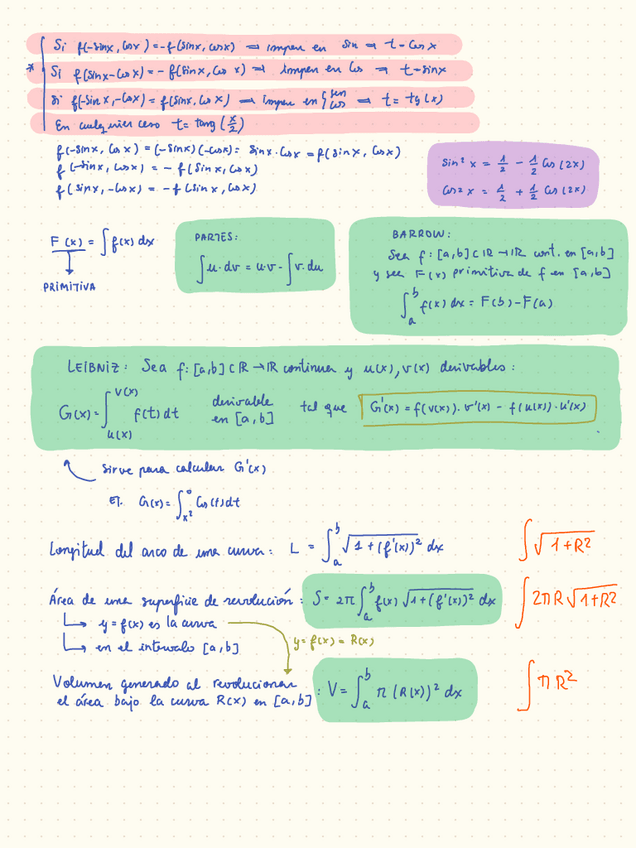 Si f(-sinx, cosx) = -f(sinx, cosx) ⇒ impar en sin ⇒ t = cos x
* Si f(sinx - cosx) = - f(sinx, cos x) ⇒ impar en cos ⇒ t = sinx
Si f(-sinx, -cosx) = f(sinx, cosx) ⇒ impar en { sen cos ⇒ t = tg(x)
En cualquier caso t = tang (x/2)
f(-sinx, cosx) = (-sinx)(-cosx) = sinx·cosx = f(sinx, cosx)
f(-sinx, cosx) = - f(sinx, cosx)
f(sinx, -cosx) = - f(sinx, cosx)
sin² x = 1/2 - 1/2 cos(2x)
cos² x = 1/2 + 1/2 cos(2x)
F(x) = ∫ f(x) dx
PRIMITIVA
PARTES:
∫ u·dv = u·v - ∫ v·du
BARROW:
Sea f: [a,b] ⊂ ℝ → ℝ cont. en [a,b]
y sea F(x) primitiva de f en [a,b]
∫_a^b f(x) dx = F(b) - F(a)
LEIBNIZ: Sea f: [a,b] ⊂ ℝ → ℝ continua y u(x), v(x) derivables:
G(x) = ∫_{u(x)}^{v(x)} f(t) dt derivable en [a,b] tal que G'(x) = f(v(x))·v'(x) - f(u(x))·u'(x)
sirve para calcular G'(x)
G(x) = ∫_{x²}^0 cos(t) dt
Longitud del arco de una curva: L = ∫_a^b √(1 + (f'(x))²) dx
∫ √(1+R²)
Área de una superficie de revolución: S = 2π ∫_a^b f(x) √(1 + (f'(x))²) dx
∫ 2πR √(1+R²)
↳ y = f(x) es la curva
↳ en el intervalo [a,b]
y = f(x) = R(x)
Volumen generado al revolucionar
el área bajo la curva R(x) en [a,b] : V = ∫_a^b π (R(x))² dx
∫ π R²